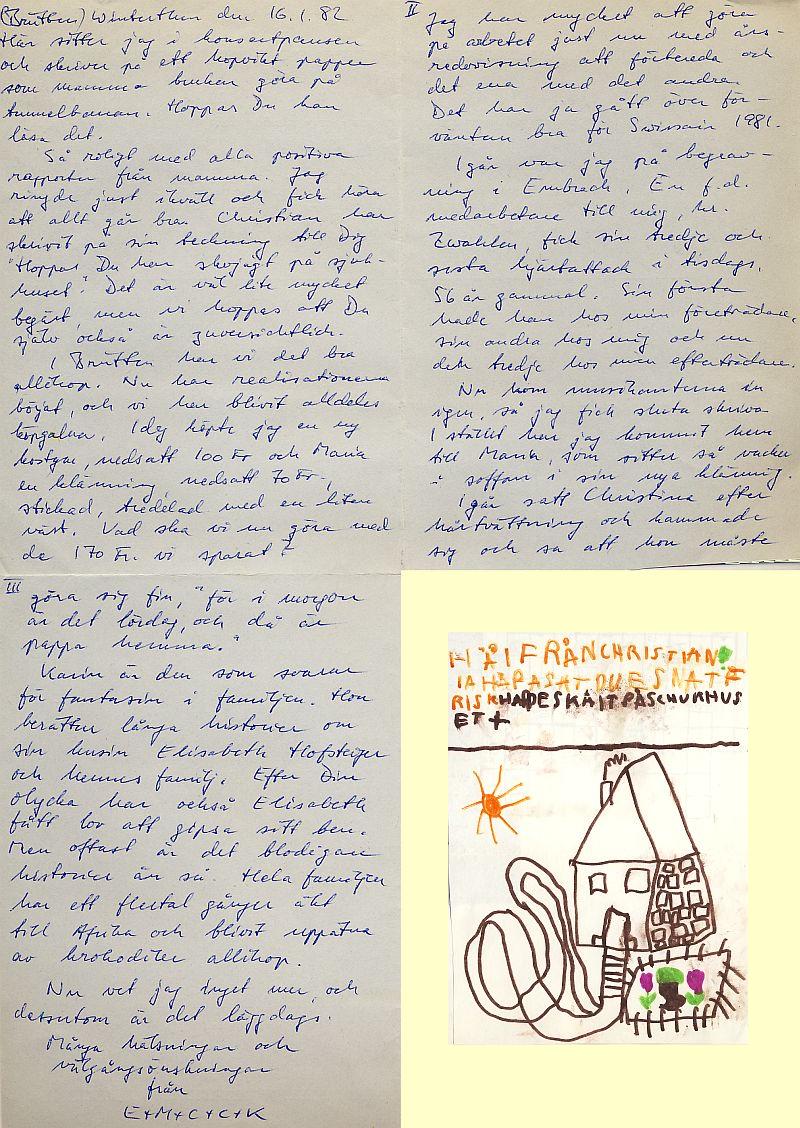 (Brütten) Winterthur den 16.1.82
Här sitter jag i konsertpausen
och skriver på ett hopvikt papper
som mamma brukar göra på
tunnelbanan. Hoppas Du kan
läsa det.
Så roligt med alla positiva
rapporter från mamma. Jag
ringde just ikväll och fick höra
att allt går bra. Christian har
skrivit på sin teckning till Dig
"Hoppas Du har skojigt på sjuk-
huset". Det är väl lite mycket
begärt, men vi hoppas att Du
själv också är zuversichtlich.
I Brütten har vi det bra
allihop. Nu har realisationerna
börjat, och vi har blivit alldeles
köpgalna. Idag köpte jag en ny
kostym, nedsatt 100 Fr och Maria
en klänning nedsatt 70 Fr,
stickad, tredelad med en liten
väst. Vad ska vi nu göra med
de 170 Fr. vi sparat?
II
Jag har mycket att göra
på arbetet just nu med års-
redovisning att förbereda och
det ena med det andra.
Det har ja gått över för-
väntan bra för Swissair 1981.
Igår var jag på begrav-
ning i Embrach. En f.d.
medarbetare till mig, hr.
Zwahlen, fick sin tredje och
sista hjärtattack i tisdags.
56 år gammal. Sin första
hade han hos min företrädare,
sin andra hos mig och nu
den tredje hos min efterträdare.
Nu kom musikanterna in
igen, så jag fick sluta skriva
I stället har jag kommit hem
till Maria, som sitter så vacker
i soffan i sin nya klänning.
Igår satt Christina efter
hårtvättning och kammade
sig och sa att hon måste
III
göra sig fin, "för i morgon
är det lördag, och då är
pappa hemma."
Karin är den som svarar
för fantasin i familjen. Hon
berättar långa historier om
sin kusin Elisabeth Hofsteiger
och hennes familj. Efter Din
olycka har också Elisabeth
fått lov att gipsa sitt ben.
Men oftast är det blodigare
historier än så. Hela familjen
har ett flertal gånger åkt
till Afrika och blivit uppätna
av krokodiler allihop.
Nu vet jag inget mer, och
dessutom är det läggdags.
Många hälsningar och
välgångsönskningar
från
E+M+C+C+K
HÄJ FRÅN CHRISTIAN
IAHÅPASATDUESNATF
RISKHADESKÅITPÅSCHUKHUS
ET